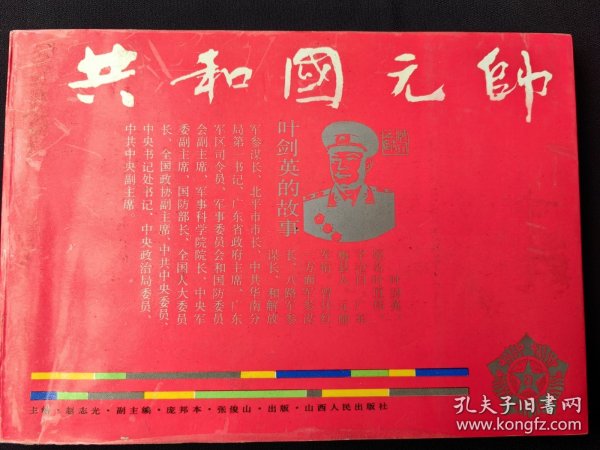 共和國元帥
叶剑英的故事
长、八路军参
谋长、和解放
军参谋长、北平市市长、中共华南分
局第一书记、广东省政府主席、广东
军区司令员、军事委员会和国防委员
会副主席、军事科学院院长、中央军
委副主席、国防部长、全国人大委员
长、全国政协副主席、中共中央委员、
中央书记处书记、中央政治局委员、
中共中央副主席
主编·赵志光·副主編·庞邦本·张俊山·出版·山西人民出版社
孔夫子旧书网
www.kongfz.com